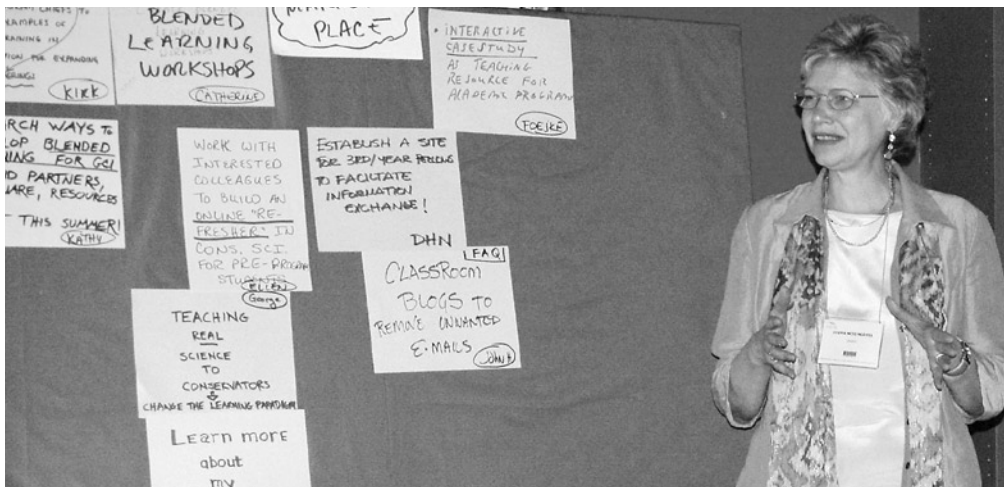 EXAMPLES OF
TRAINING IN
FOR EXPANDING
KIRK
BLENDED
LEARNING
WORKSHOPS
CATHERINE
PLACE
• INTERACTIVE
CASESTUDY
AS TEACHING
RESOURCE FOR
ACADEMIC PROGRAM
FOEKJE
WAYS TO
BLENDED
FOR GCI
PARTNERS,
RESOURCES
THIS SUMMER!
KATHY
WORK WITH
INTERESTED
COLLEAGUES
TO BUILD AN
ONLINE "RE-
FRESHER" IN
CONS. SCI.
FOR PRE-PROGRAM
STUDENTS
ELLEN
ESTABLISH A SITE
FOR 3RD/YEAR
TO FACILITATE
INFORMATION
EXCHANGE!
DHN
FAQ
CLASSROOM
BLOGS TO
REMOVE UNWANTED
E-MAILS
JOHN H
George
TEACHING
REAL
SCIENCE
TO
CONSERVATORS
CHANGE THE LEARNING PARADIGM
Learn more
about
my